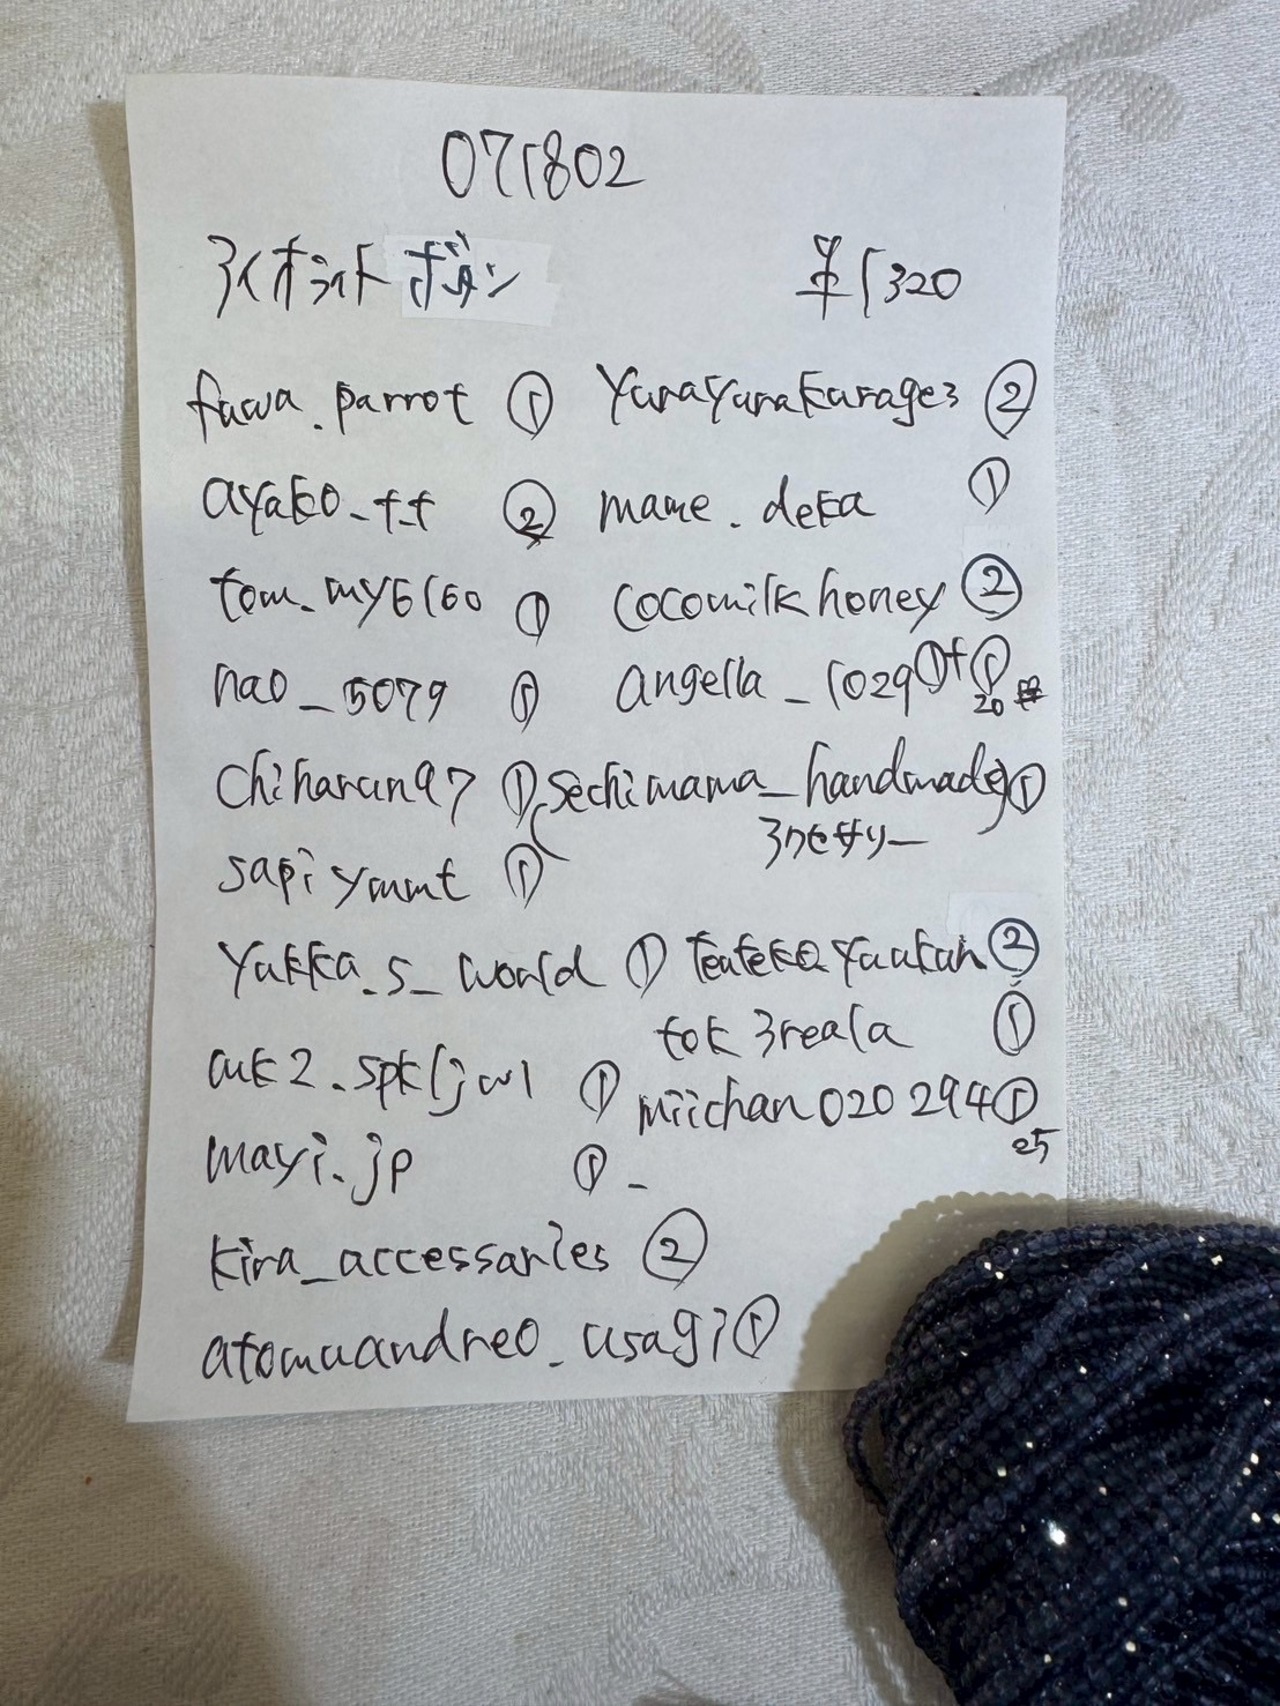 071802
アイオライト ボタン 単1320
fuwa.parrot ① yurayurakurage3 ②
ayako_t.t ② mame.deka ①
tom.my6160 ① cocomilkhoney ②
nao_5079 ① angella_1029 ①+① 20
chiharun97 ① sechimama_handmade ①
アクセサリー
sapiymmt ①
yukka.s_world ① teuteko.yuukan ②
tok3reala ①
auk2.spkljwl ① miichan020294 ① 25
mayi.jp ①
kira_accessaries ②
atomuandreo_usagi ①